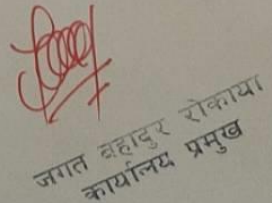 जगत बहादुर रोकाया
कार्यालय प्रमुख